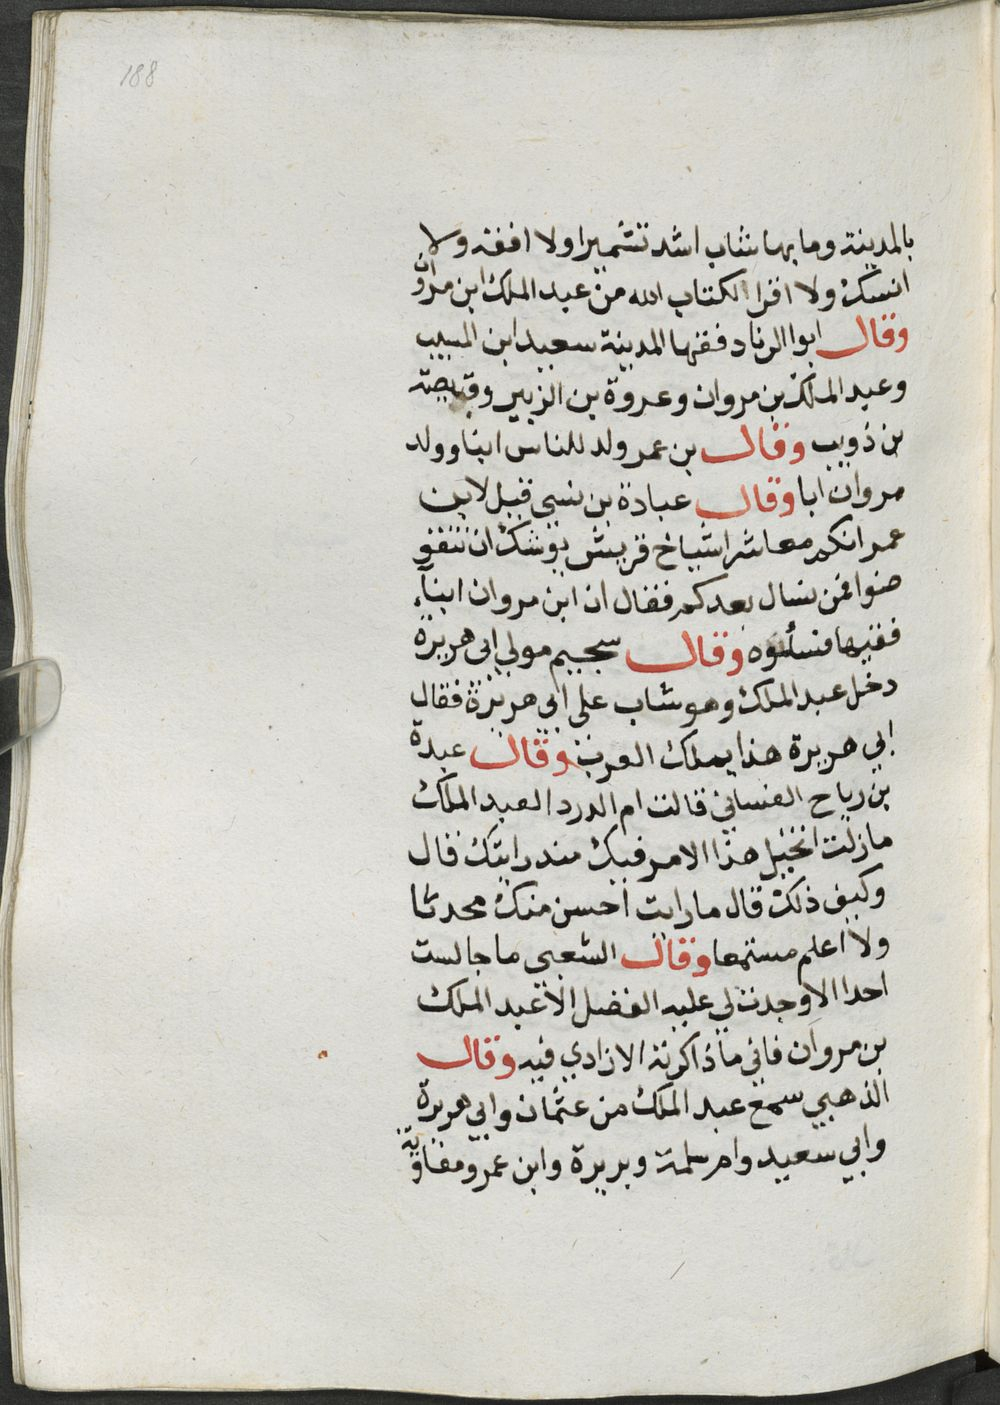 188
بالمدينة وما بها شاب اشد تشميرا ولا افقه ولا
انسك ولا اقرا الكتاب الله من عبد الملك ابن مروان
وقال ابوا الزناد فقها المدينة سعيد ابن المسيب
وعبد الملك بن مروان وعروة بن الزبير وقبيصة
بن ذويب وقال بن عمر ولد للناس ابنا وولد
مروان ابا وقال عبادة بن نسى قيل لابن
عمر انكم معاشر اشياخ قريش يوشك ان تنقر
ضوا فمن نسال بعدكم فقال ان ابن مروان ابنآء
فقيها فسألوه وقال سجيم مولي ابى هريرة
دخل عبد الملك وهو شاب على ابى هريرة فقال
ابي هريرة هذا يملك العرب وقال عبدة
بن رياح الغساني قالت ام الدرد العبد الملك
مازلت اتخيل هذا الامر فيك منذ رايتك قال
وكيف ذلك قال ما رايت احسن منك محدثا
ولا اعلم مستمعا وقال الشعبى ما جالست
احدا الا وجدت لى عليه الفضل الا عبد الملك
بن مروان فاني ما ذاكرته الا زادي فيه وقال
الذهبي سمع عبد الملك من عثمان وابي هريرة
وابي سعيد وام سلمة وبريرة وابن عمر ومعاوية